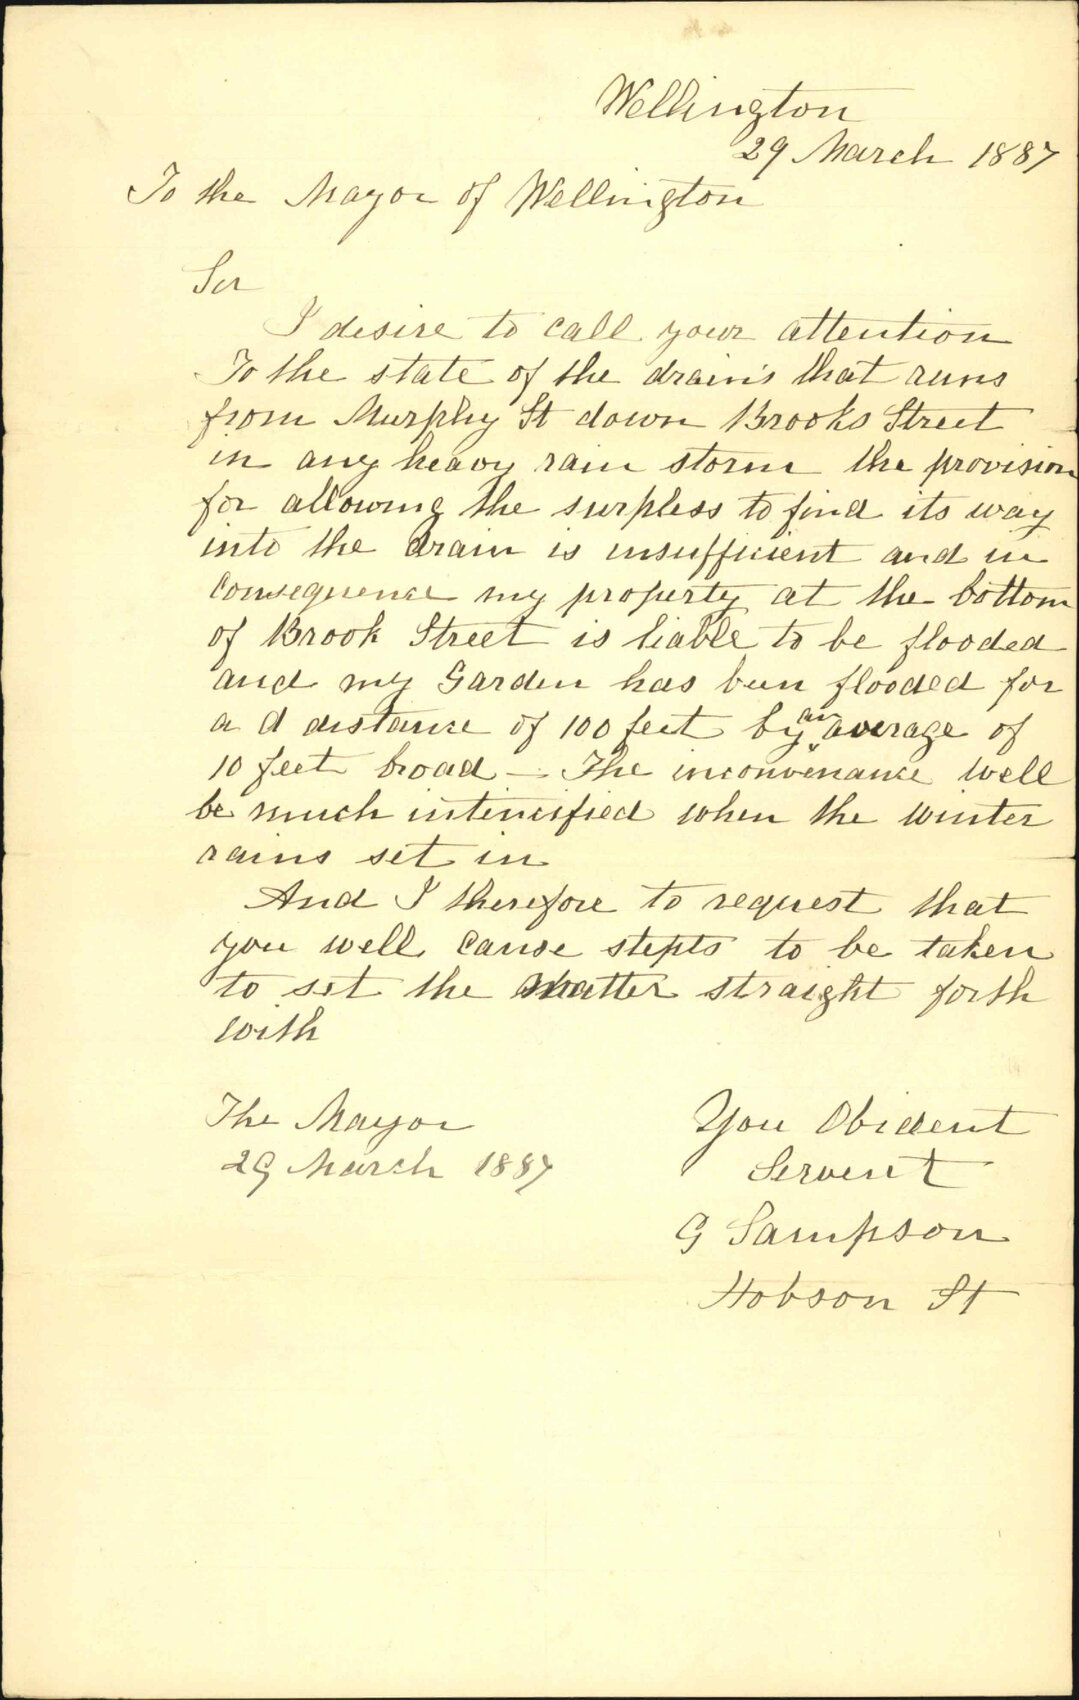 Wellington
29 March 1887
To the Mayor of Wellington
Ser
I desire to call your attention
To the state of the drains that runs
from Murphy St down Brooks Street
in any heavy rain storm the provision
for allowing the surpless to find its way
into the drain is insufficient and in
consequence my property at the bottom
of Brook Street is liable to be flooded
and my Garden has been flooded for
a d distance of 100 feet by an average of
10 feet broad — The inconvenance well
be much intincified when the winter
rains set in
And I therefore to request that
you well cause stepts to be taken
to set the matter straight forth
with
The Mayor
29 March 1887
You Obident
Servent
G Sampson
Hobson St